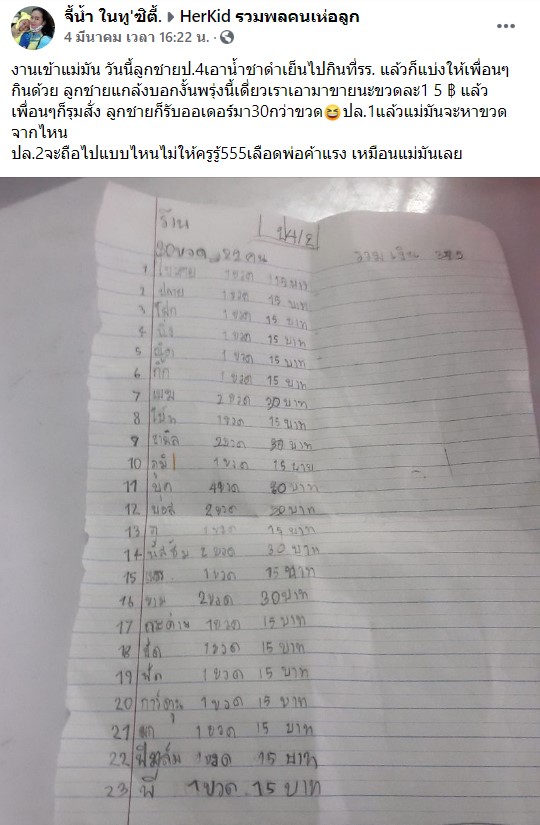 จิ๊น้ำ ในทู'ซิตี้. ▸ HerKid รวมพลคนเห่อลูก
4 มีนาคม เวลา 16:22 น.
งานเข้าแม่มัน วันนี้ลูกชายป.4เอาน้ำชาดำเย็นไปกินที่รร. แล้วก็แบ่งให้เพื่อนๆ
กินด้วย ลูกชายแกล้งบอกงั้นพรุ่งนี้เดี่ยวเราเอามาขายนะขวดละ1 5 ฿ แล้ว
เพื่อนๆก็รุมสั่ง ลูกชายก็รับออเดอร์มา30กว่าขวด😆ปล.1แล้วแม่มันจะหาขวด
จากไหน
ปล.2จะถือไปแบบไหนไม่ให้ครูรู้555เลือดพ่อค้าแรง เหมือนแม่มันเลย
ร้าน ป4/2
30ขวด 22 คน รวมเงิน
1 1 ขวด 15 บาท
2 1 ขวด 15 บาท
3 1 ขวด 15 บาท
4 1 ขวด 15 บาท
5 1 ขวด 15 บาท
6 กั๊ก 1 ขวด 15 บาท
7 2 ขวด 30 บาท
8 1 ขวด 15 บาท
9 2ขวด 30 บาท
10 ภูมิ 1 ขวด 15 บาท
11 4ขวด บาท
12 บอส 2 ขวด 30 บาท
13 1 ขวด 15 บาท
14 2 ขวด 30 บาท
15 1 ขวด 15 บาท
16 2ขวด 30 บาท
17 1ขวด 15 บาท
18 1ขวด 15 บาท
19 1 ขวด 15 บาท
20 การ์ตูน 1 ขวด 15 บาท
21 1 ขวด 15 บาท
22 1ขวด 15 บาท
23 พี 1ขวด 15 บาท